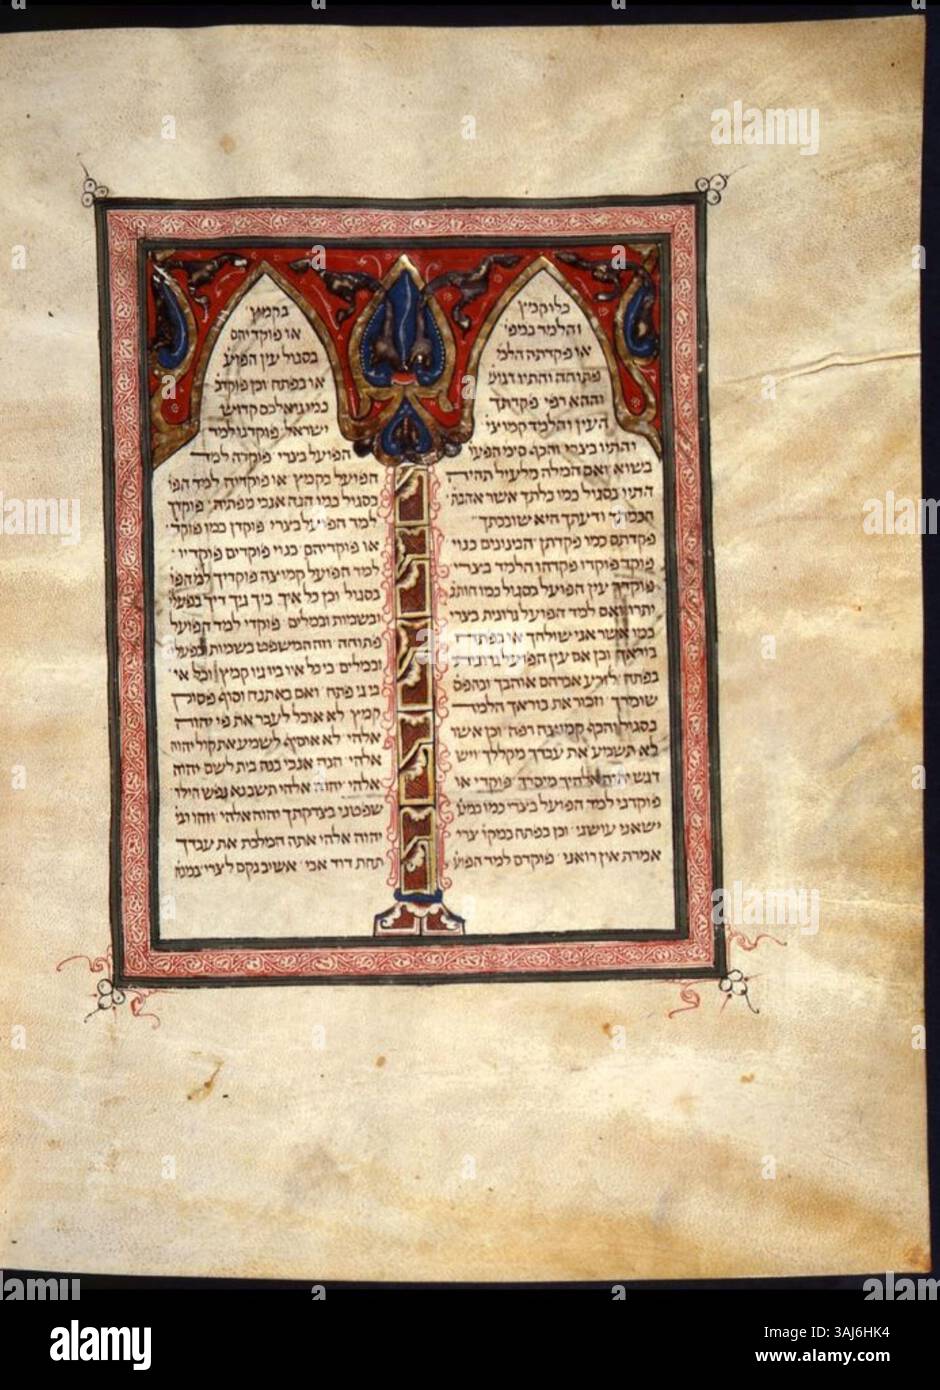 כלו קמץ
והלמד במפי
או פקדתה הלמ
פתוחה והתיו דגוש
וההא רפי פקדתך
העין והלמד קמוצי
והתיו בצרי והכף סימ הפעו
בשוא ואם המלה מלעיל תהיה
התיו בסגול כמו כלתך אשר אהבת
חכמתך ודעתך היא שובבתך
פקדתם כמו פקדתן הבינונים כגוי
פוקד פוקדו פקדהו הלמד בצרי
פוקדך עין הפועל בסגול כמו חותנ
יתרו ואם למד הפועל גרונית בצרי
כמו אשר אני שולחך או בפתח
בוראך וכן אם עין הפועל גרונית
בפתח לזרע אברהם אוהבך ובהפס
שומרך וזכור את בוראך הלמד
בסגול והכף קמוצה רפה וכן אשר
לא תשמע את עבדך מקללך ויש
דגש יהוה אלהיך מיסרך פוקדי או
פוקדני למד הפועל בצרי כמו כמע
ישאני עושני וכן בפתח במקו צרי
אמרת אין רואני פוקדם למד הפוע
בקמץ
או פוקדיהם
בסגול עין הפוע
או בפתח וכן פוקדכ
כמו גואלכם קדוש
ישראל פוקדנו למד
הפועל בצרי פוקדה למד
הפועל בקמץ או פוקדיה למד הפו
בסגול כמו הנה אנכי מפתיה פוקדך
למד הפועל בצרי פוקדן כמו פוקד
או פוקדיהם כגוי פוקדים פוקדיו
למד הפועל קמוצה פוקדיך למ הפו
בסגול וכן כל איך ביך גיך דיך בפעל
ובשמות ובמלים פוקדי למד הפועל
פתוחה וזה המשפט בשמות ובפעל
ובמלים בכל איו ביו גיו קמץ וכל אי
בי גי פתח ואם באתנח וסוף פסוק
קמץ לא אוכל לעבר את פי יהוה
אלהי לא אוסיף לשמע את קול יהוה
אלהי הנה אנכי בנה בית לשם יהוה
אלהי יהוה אלהי תשב נא נפש הילד
שפטני כצדקתך יהוה אלהי וזהו וגו
יהוה אלהי אתה המלכת את עבדך
תחת דוד אבי אשיב נקם לצרי במנח
alamy
Image ID: 3AJ6HK4
www.alamy.com